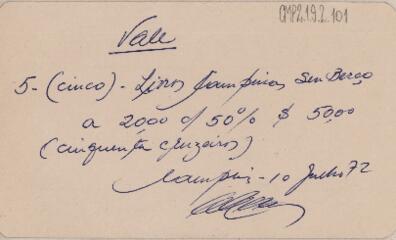 CMP2.1.9.2.101
Vale
5 - (cinco) - Livros Campinas Seu Berço
a 20,00 c/ 50% $ 50,00
(cinquenta cruzeiros)
Campinas - 10 Julho 72